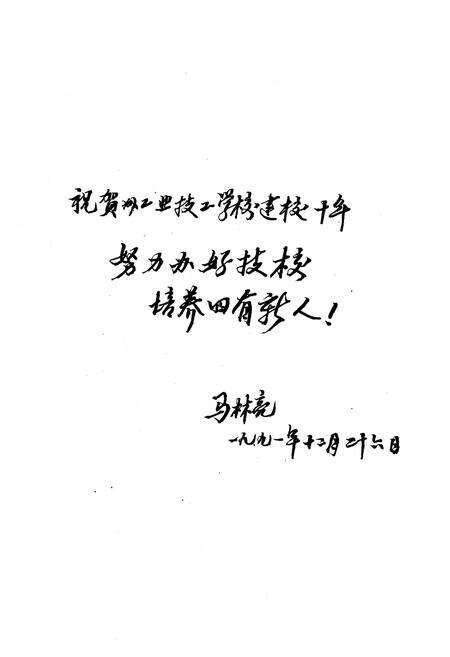 祝贺州工业技工学校建校十年
努力办好技校
培养四有新人！
马林亮
一九九一年十二月二十六日